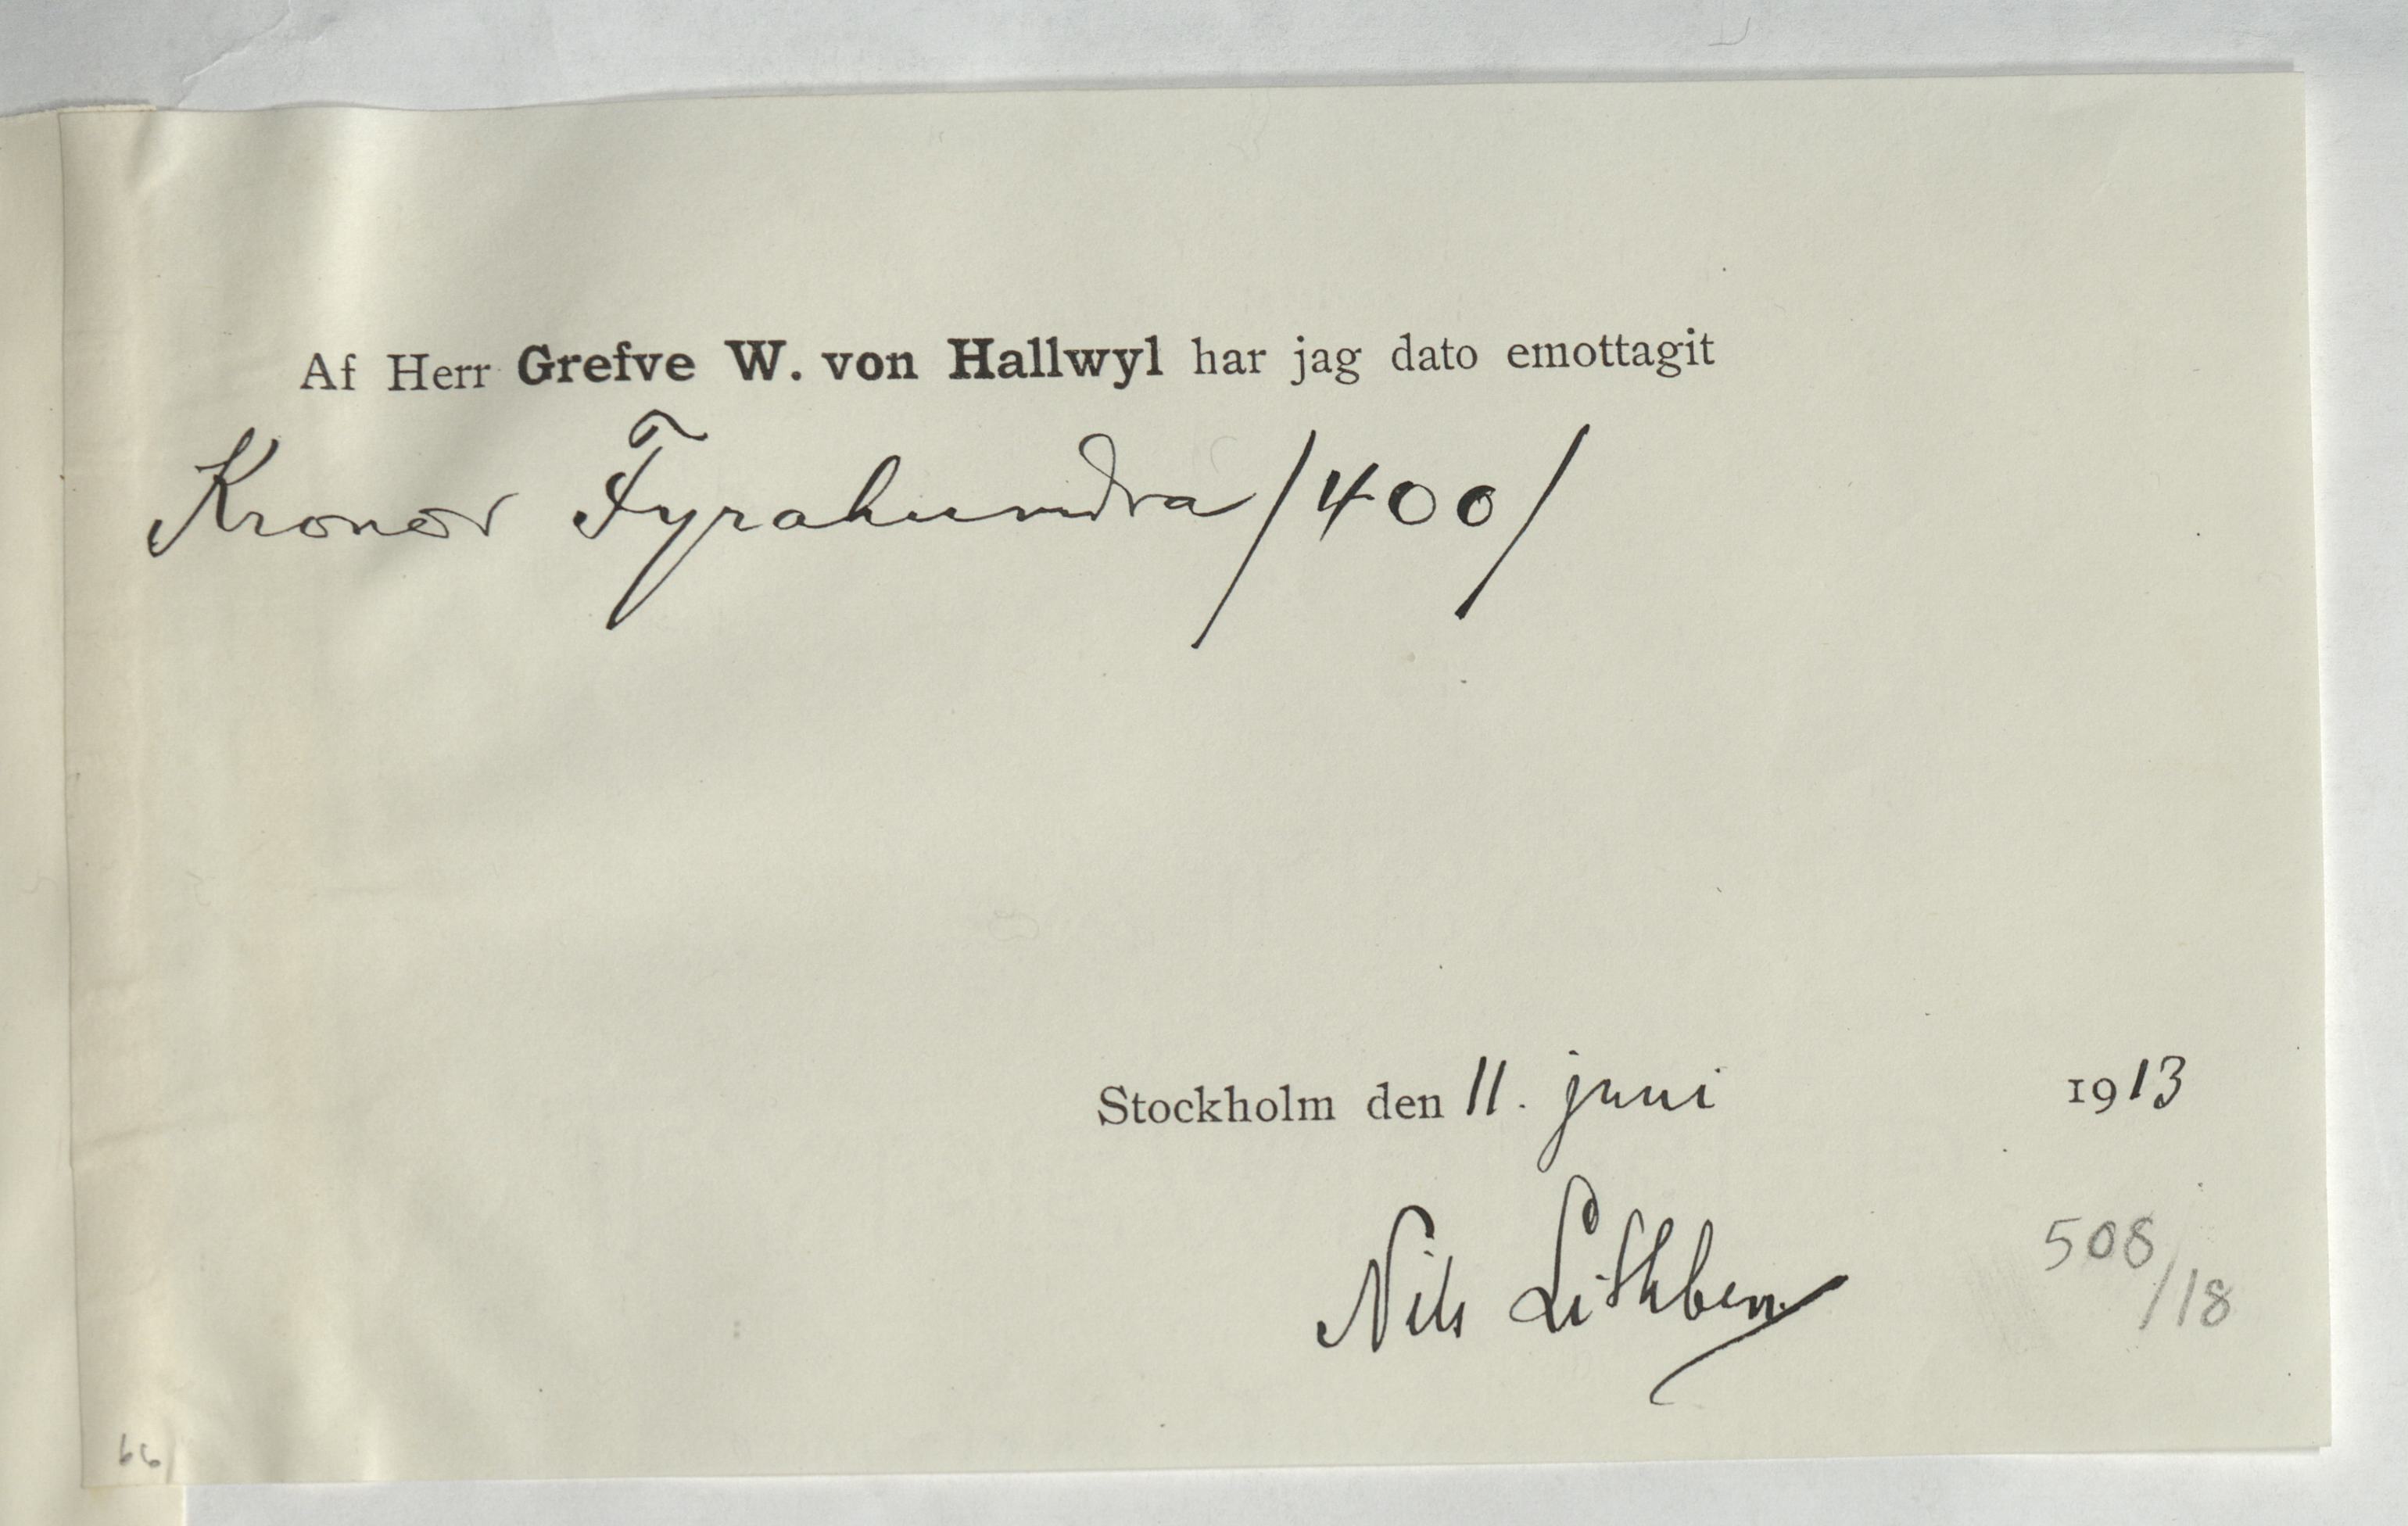 Af Herr Grefve W. von Hallwyl har jag dato emottagit
Kronor Fyrahundra /400/
Stockholm den 11. juni 1913
Nils Lithberg
508/18
66